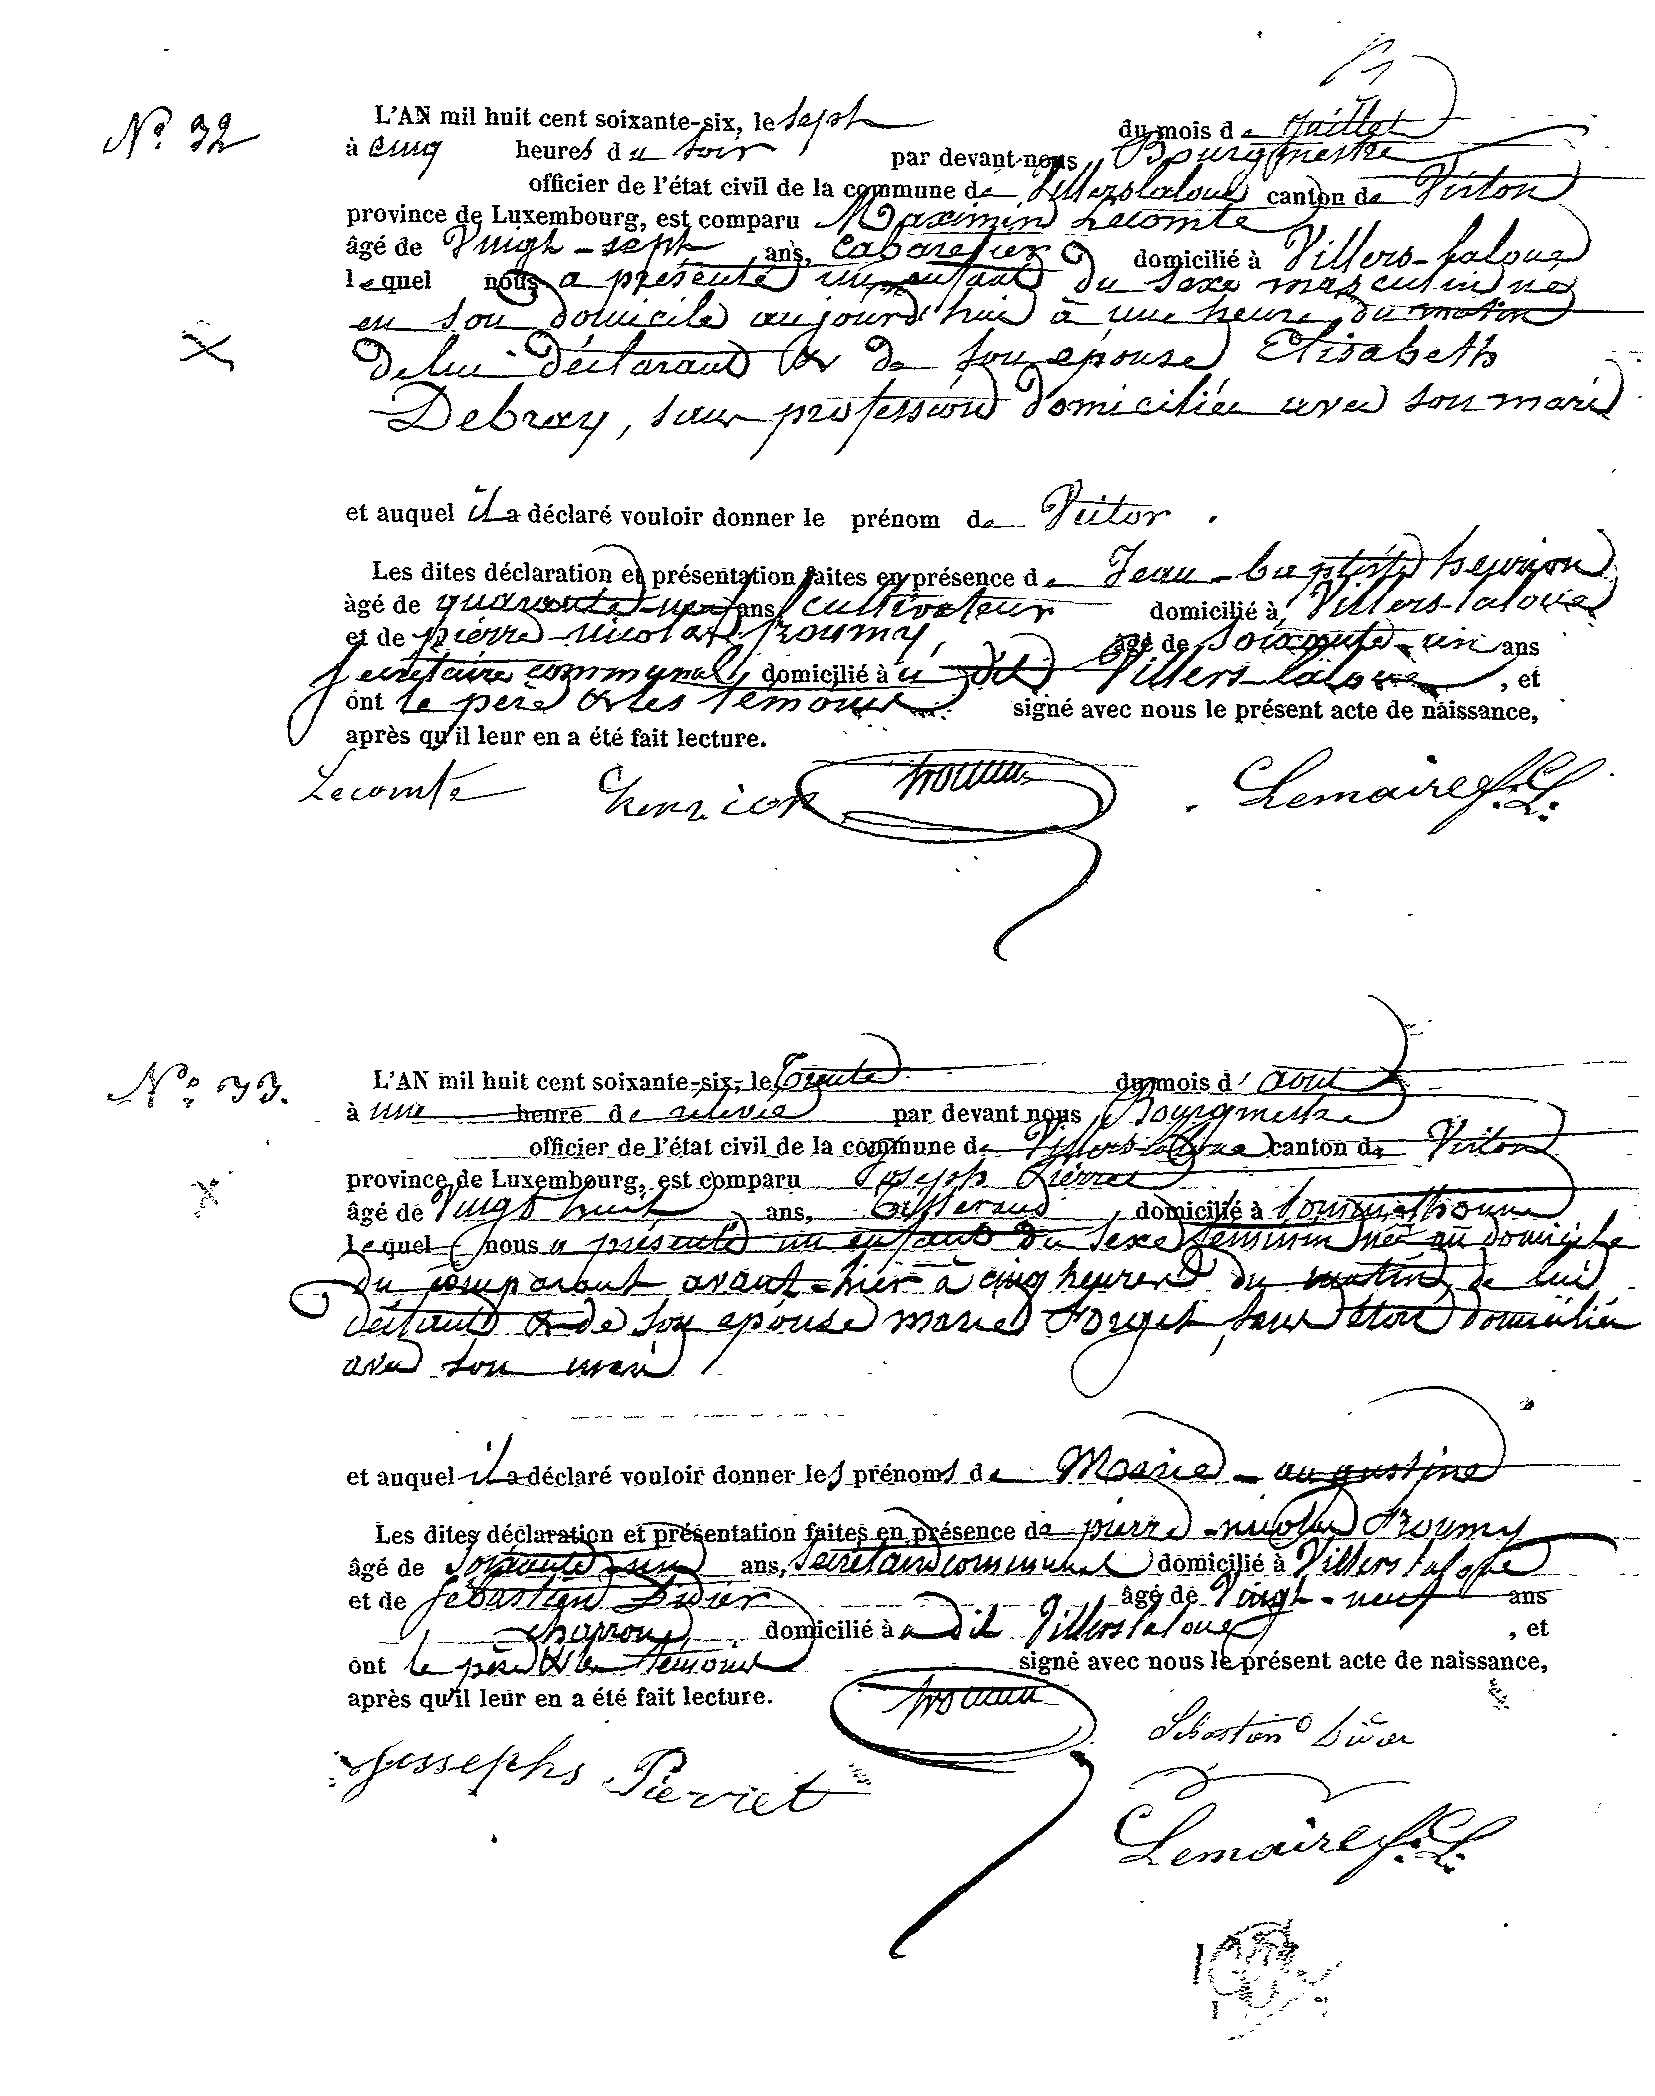 N° 32
L'AN mil huit cent soixante-six, le sept du mois de Juillet
à cinq heures du soir par devant nous Bourgmestre
officier de l'état civil de la commune de Villers-laloue canton de Virton
province de Luxembourg, est comparu Maximin Lecomte
âgé de Vingt-sept ans, Cabaretier domicilié à Villers-laloue
lequel nous a présenté un enfant du sexe masculin né
en son domicile aujourd'hui à une heure du matin
de lui déclarant & de son épouse Elisabeth
Debray, sans profession domiciliée avec son mari
et auquel il a déclaré vouloir donner le prénom de Victor.
Les dites déclaration et présentation faites en présence de Jean-baptiste henrion
âgé de quarante-neuf ans cultivateur domicilié à Villers-laloue
et de pierre-nicolas Roumy, âgé de soixante-un ans
secrétaire communal, domicilié à dit Villers-laloue, et
ont le père & les témoins signé avec nous le présent acte de naissance,
après qu'il leur en a été fait lecture.
Lecomte henrion Lemaire
N° 33.
L'AN mil huit cent soixante-six, le trente du mois d'août
à une heure de relevée par devant nous Bourgmestre
officier de l'état civil de la commune de Villers-laloue canton de Virton
province de Luxembourg, est comparu Joseph Pierret
âgé de Vingt huit ans, tisserand domicilié à
lequel nous a présenté un enfant du sexe féminin né au domicile
du comparant avant-hier à cinq heures du matin, de lui
déclarant & de son épouse marie Forget, sans état domiciliée
avec son mari
et auquel il a déclaré vouloir donner les prénoms de Marie-augustine
Les dites déclaration et présentation faites en présence de pierre-nicolas Roumy
âgé de soixante-un ans, secrétaire communal domicilié à Villers laloue
et de Sébastien Didier âgé de Vingt-neuf ans
domicilié à dit Villers laloue, et
ont le père & les témoins signé avec nous le présent acte de naissance,
après qu'il leur en a été fait lecture.
Jossephs Pierret Sébastien Didier
Lemaire